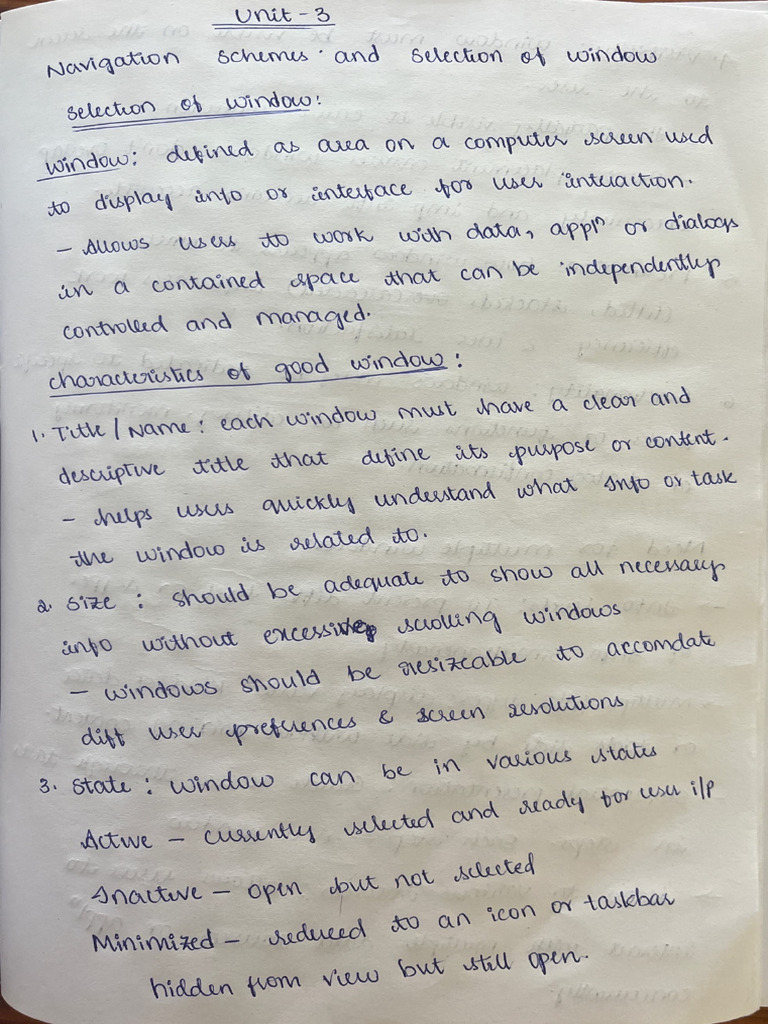 Unit - 3
Navigation schemes and selection of window
selection of window:
window: defined as area on a computer screen used
to display info or interface for user interaction.
- Allows users to work with data, appln or dialogs
in a contained space that can be independently
controlled and managed.
characteristics of good window:
1. Title / Name: each window must have a clear and
descriptive title that define its purpose or content.
- helps users quickly understand what info or task
the window is related to.
2. Size: should be adequate to show all necessary
info without excessive scrolling windows
- windows should be resizeable to accomdate
diff user preferences & screen resolutions
3. State: window can be in various states
Active - currently selected and ready for user i/p
Inactive - open but not selected
Minimized - reduced to an icon or taskbar
hidden from view but still open.